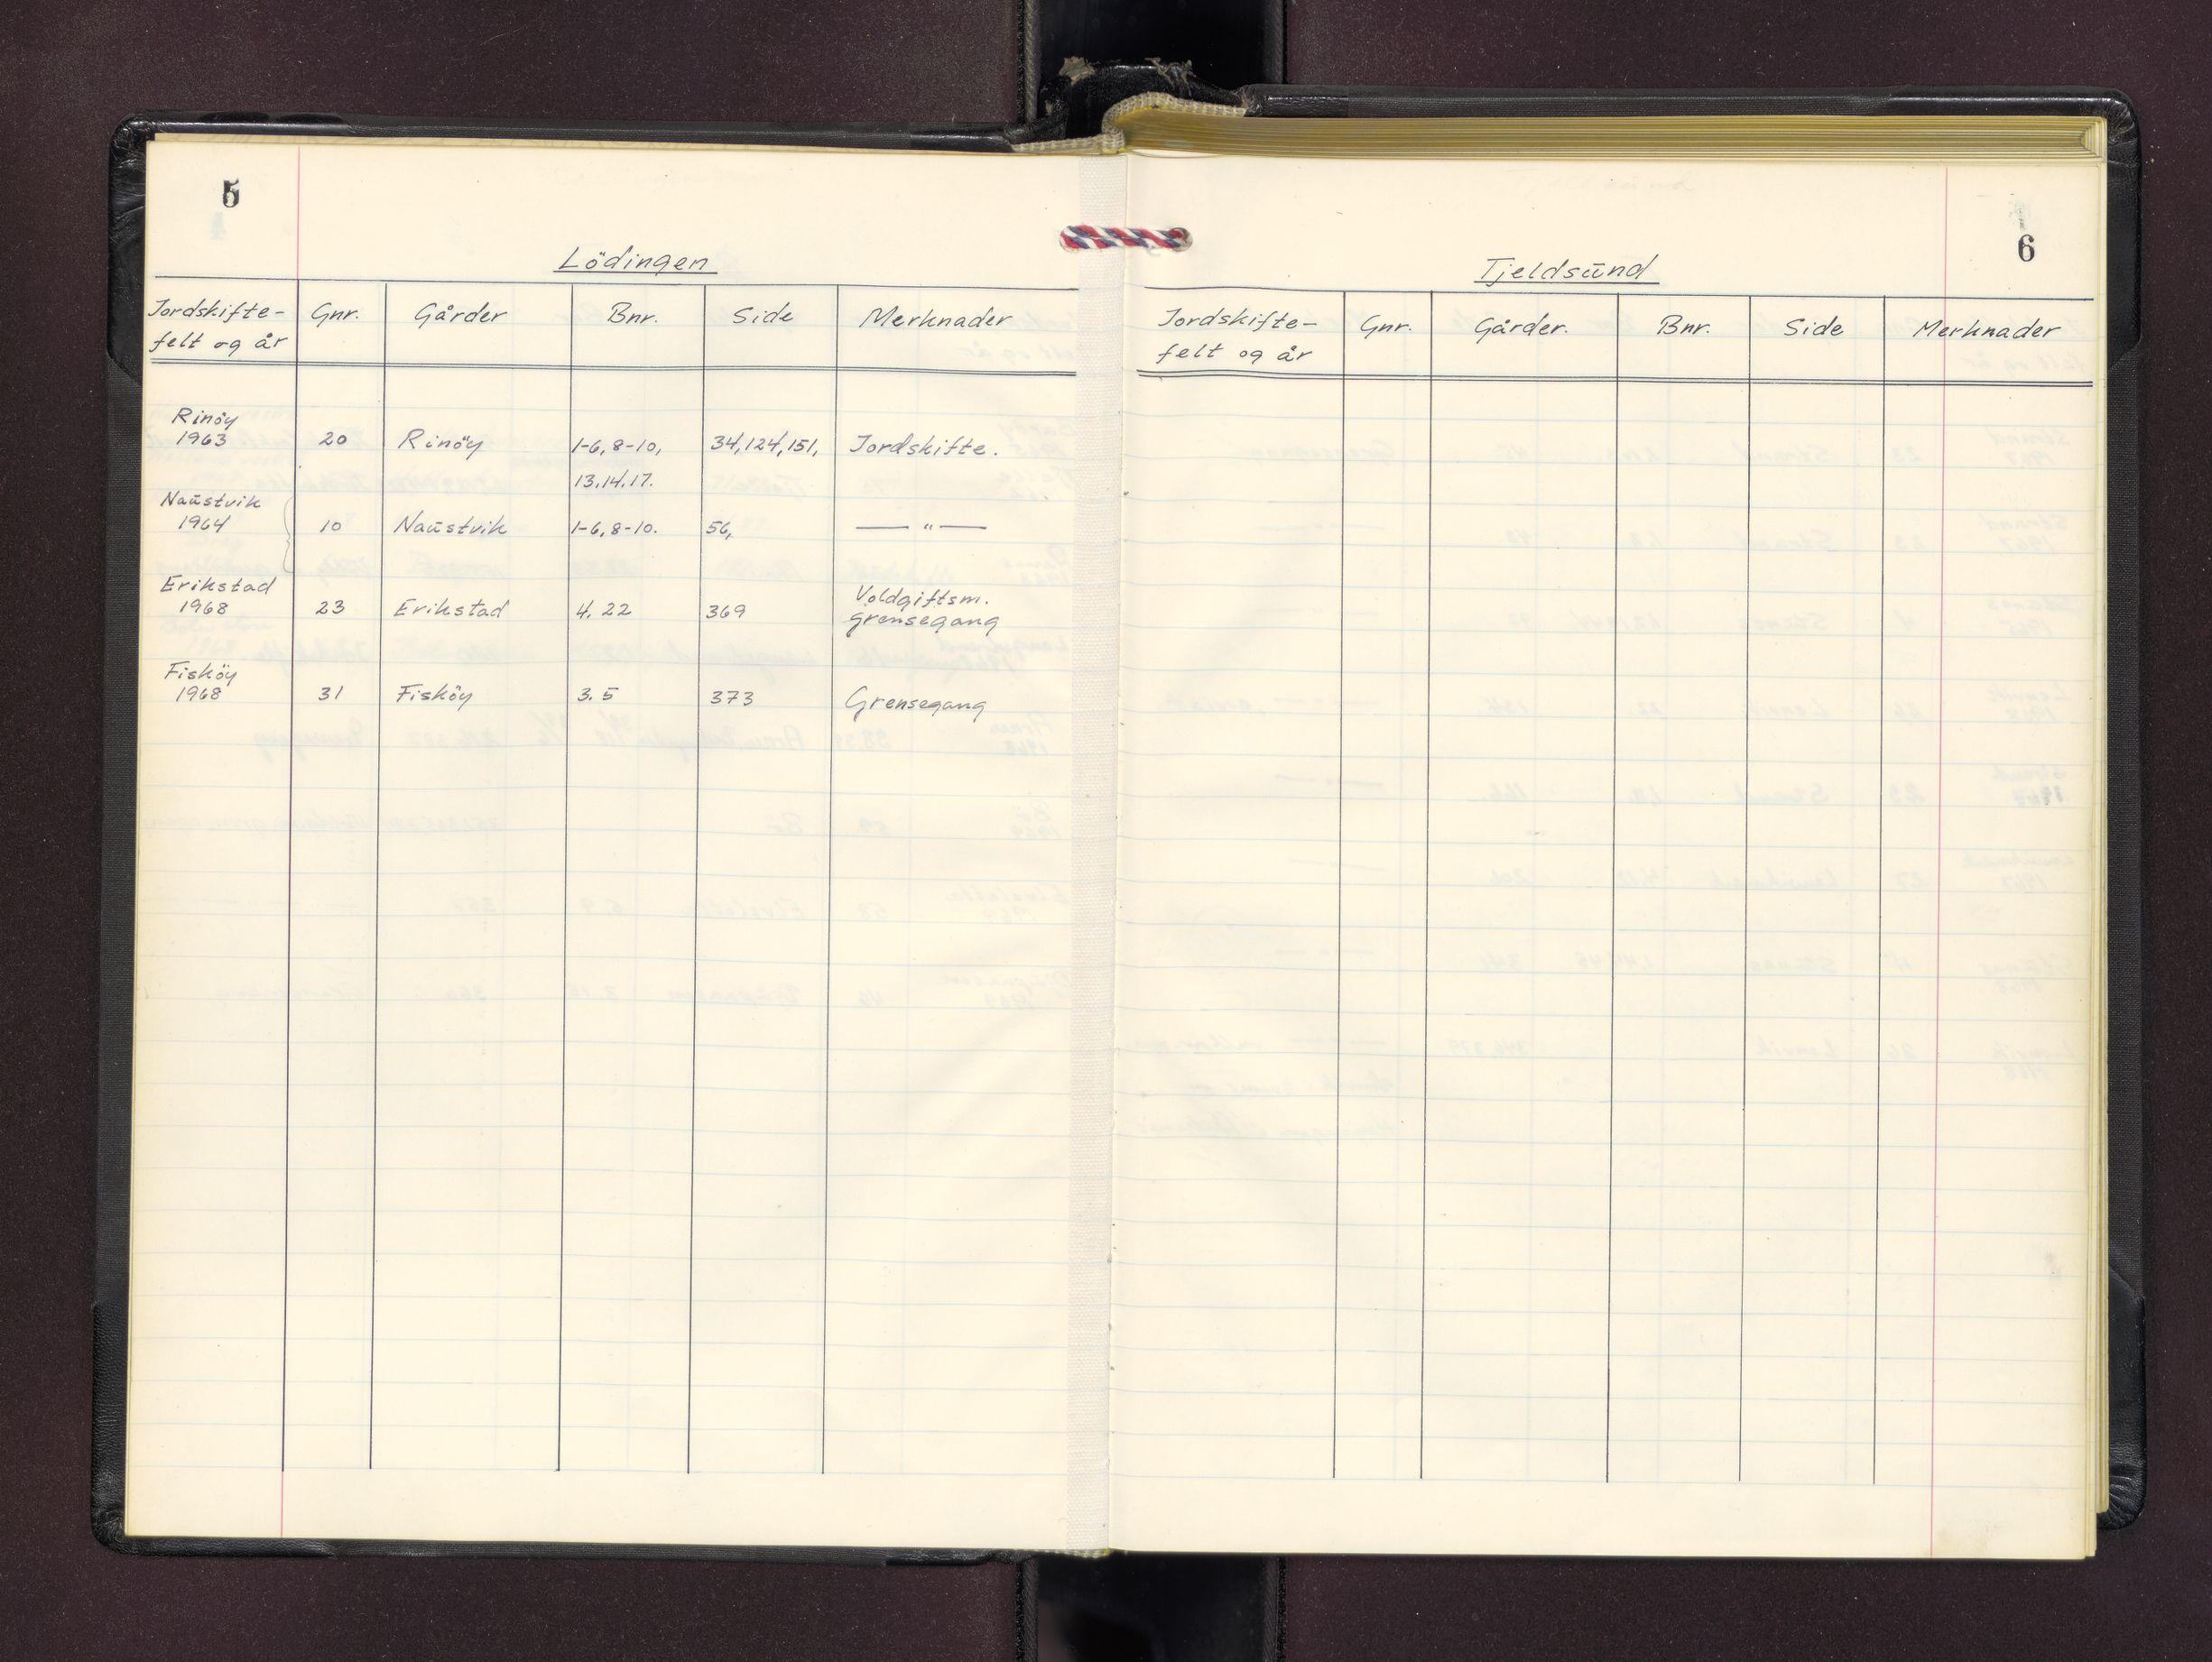 5
Lödingen
Jordskifte- Gnr. Gårder Bnr. Side Merknader
felt og år
Rinöy
1963 20 Rinöy 1-6, 8-10, 34, 124, 151, Jordskifte.
13. 14. 17.
Naūstvik
1964 10 Naūstvik 1-6, 8-10. 56, — " —
Erikstad Voldgiftsm.
1968 23 Erikstad 4. 22 369 grensegang
Fisköy
1968 31 Fisköy 3. 5 373 Grensegang
6
Tjeldsūnd
Jordskifte- Gnr. Gårder. Bnr. Side Merknader
felt og år